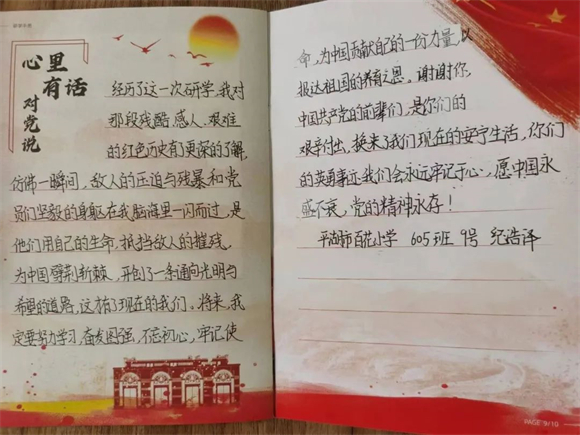 心里
有话
对党说
经历了这一次研学,我对
那段残酷、感人、艰难
的红色历史有了更深的了解,
仿佛一瞬间,敌人的压迫与残暴和党
员们坚毅的身躯在我脑海里一闪而过,是
他们用自己的生命,抵挡敌人的摧残,
为中国劈荆斩棘,开创了一条通向光明与
希望的道路,这才有了现在的我们。将来,我
定要努力学习,奋发图强,不忘初心,牢记使
命,为中国贡献自己的一份力量,以
报达祖国的养育之恩。谢谢你,
中国共产党的前辈们,是你们的
艰辛付出,换来了我们现在的安宁生活,你们
的英勇事迹我们会永远牢记于心,愿中国永
盛不衰,党的精神永存!
平湖师百花小学 605班 9号 纪浩泽
PAGE 9/10